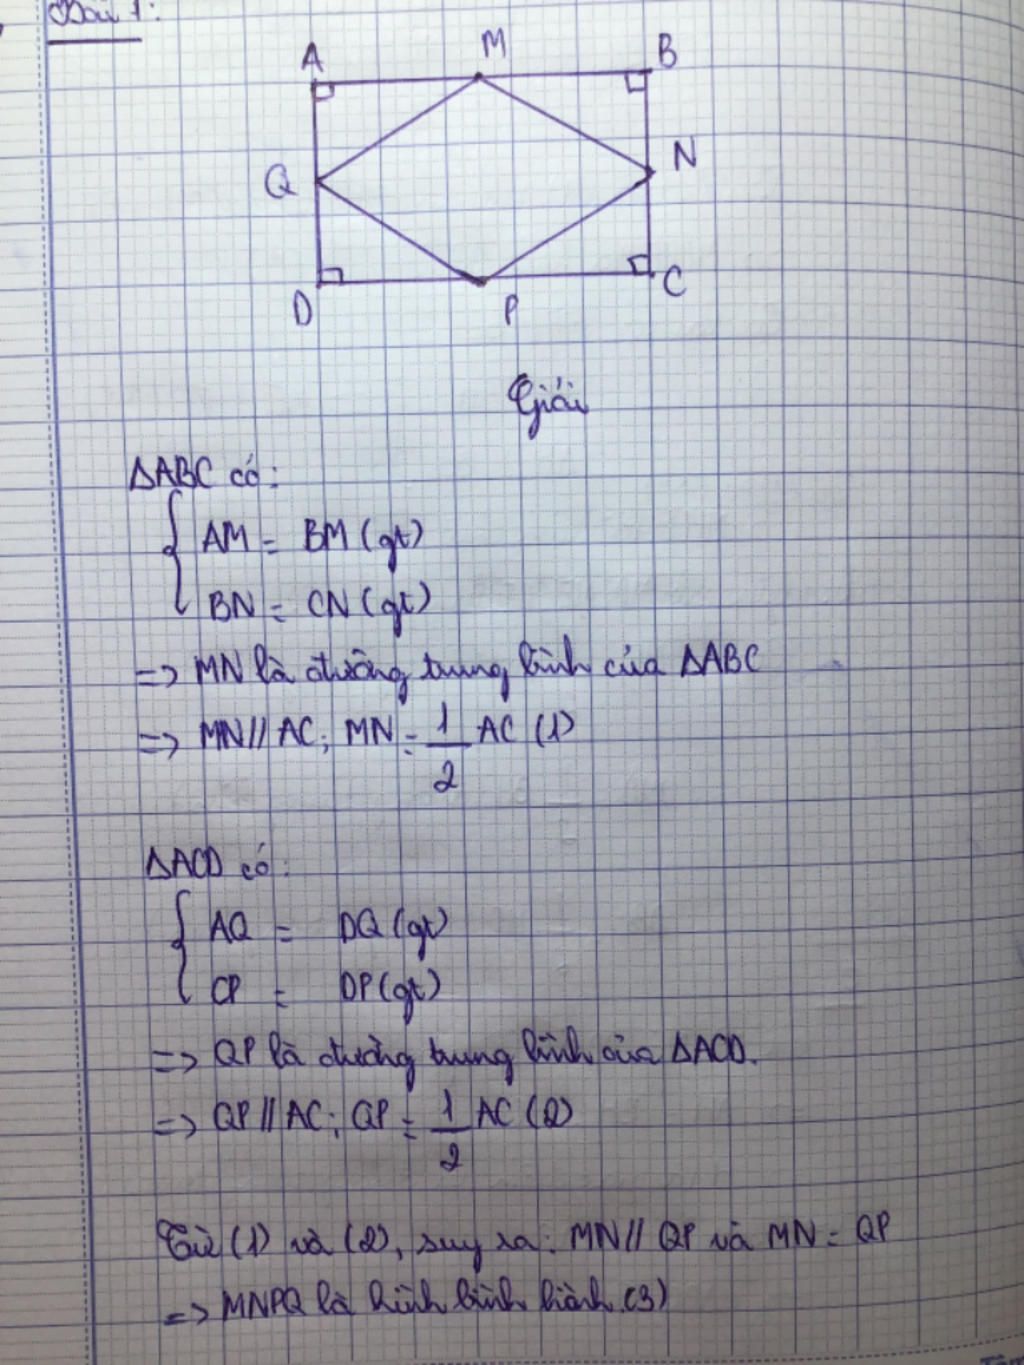 Bài 1:
A M B
Q N
D P C
Giải
ΔABC có:
AM = BM (gt)
BN = CN (gt)
=> MN là đường trung bình của ΔABC
=> MN // AC; MN = 1/2 AC (1)
ΔACD có:
AQ = DQ (gt)
CP = DP (gt)
=> QP là đường trung bình của ΔACD.
=> QP // AC; QP = 1/2 AC (2)
Từ (1) và (2), suy ra: MN // QP và MN = QP
=> MNPQ là hình bình hành (3)